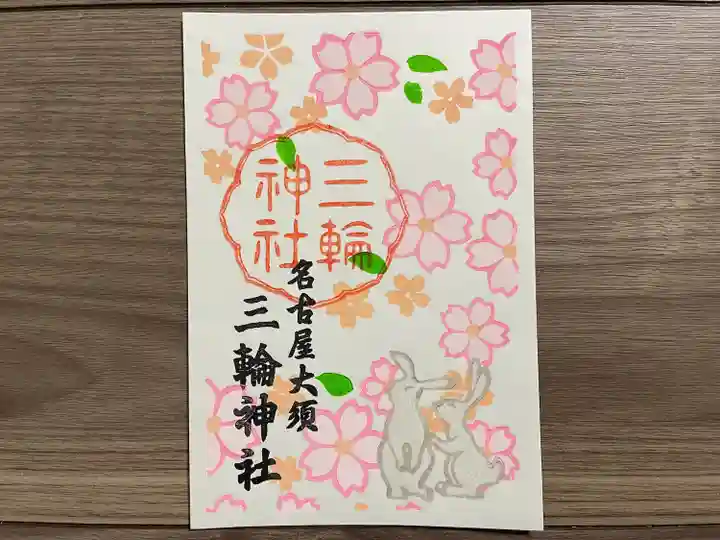 三輪
神社
名古屋大須
三輪神社